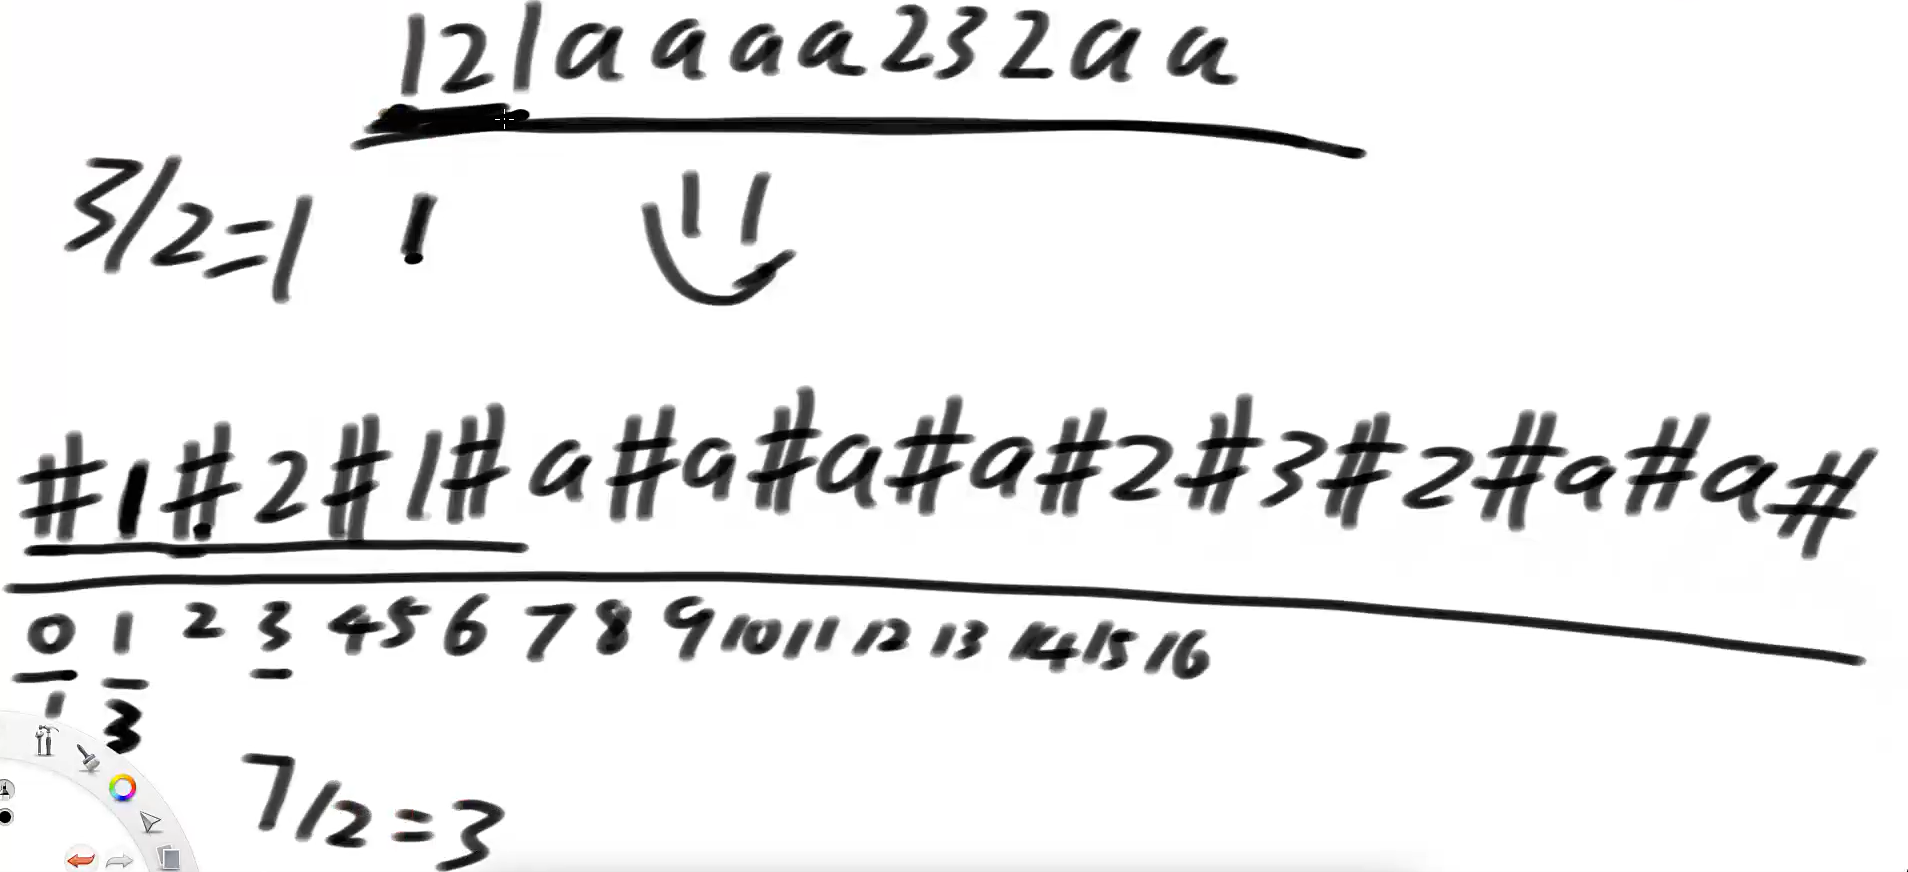 121aaaa232aa
3/2=1 1
#1#2#1#a#a#a#a#2#3#2#a#a#
0 1 2 3 4 5 6 7 8 9 10 11 12 13 14 15 16
1 3
7/2=3